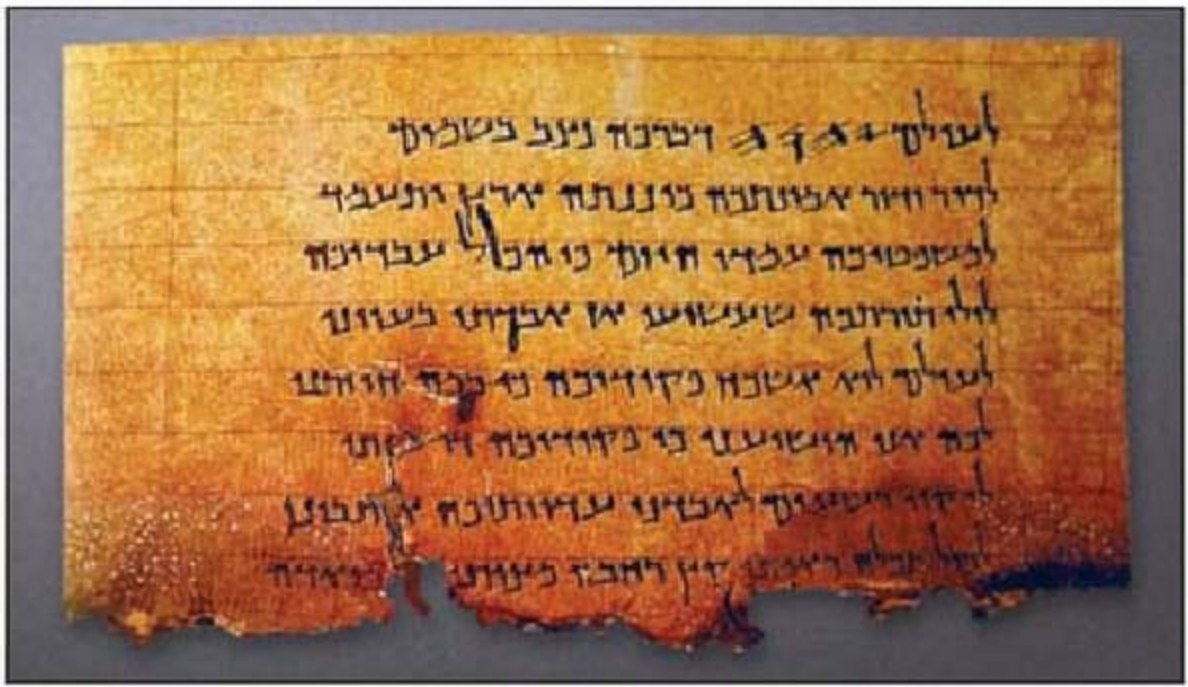 לעולם 𐤉𐤄𐤅𐤄 דברכה נצב בשמים
לדור ודור אמונתכה כוננתה ארץ ותעמד
למשפטיכה עמדו היום כי הכול עבדיכה
לולי תורתכה שעשועי אז אבדתי בעווני
לעולם לוא אשכח פקודיכה כי במה חייתני
לכה אני הושיעני כי פקודיכה דרשתי
לי קוו רשעים לאבדני עדוותיכה אתבונן
לכול תכלה ראיתי קץ רחבה